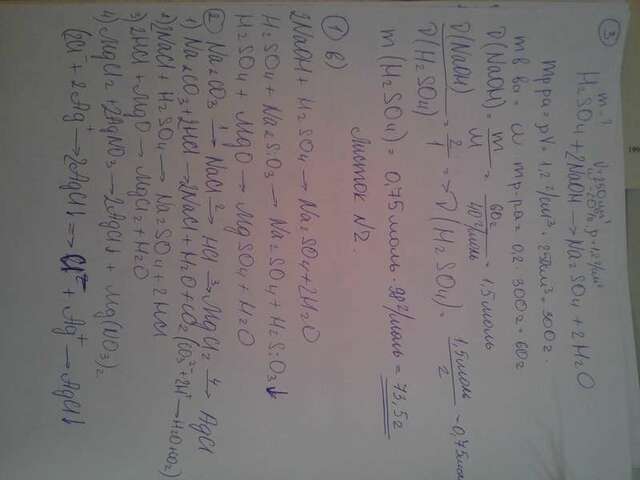 ③
m-? V=250см³ ρ=1,2г/см³
H₂SO₄ + 2NaOH → Na₂SO₄ + 2H₂O
mр-ра = ρV = 1,2 г/см³ · 250см³ = 300г.
mв-ва = ω · mр-ра = 0,2 · 300г = 60г
ν(NaOH) = m/M = 60г/40г/моль = 1,5 моль
ν(NaOH)/ν(H₂SO₄) = 2/1 => ν(H₂SO₄) = 1,5 моль/2 = 0,75 моль
m(H₂SO₄) = 0,75 моль · 98г/моль = 73,5г
Листок N2.
① в)
2NaOH + H₂SO₄ → Na₂SO₄ + 2H₂O
H₂SO₄ + Na₂SiO₃ → Na₂SO₄ + H₂SiO₃↓
H₂SO₄ + MgO → MgSO₄ + H₂O
② Na₂CO₃ 1→ NaCl 2→ HCl 3→ MgCl₂ 4→ AgCl
1) Na₂CO₃ + 2HCl → 2NaCl + H₂O + CO₂ (CO₃²⁻ + 2H⁺ → H₂O + CO₂)
2) 2NaCl + H₂SO₄ → Na₂SO₄ + 2HCl
3) 2HCl + MgO → MgCl₂ + H₂O
4) MgCl₂ + 2AgNO₃ → 2AgCl↓ + Mg(NO₃)₂
2Cl⁻ + 2Ag⁺ → 2AgCl↓ => Cl⁻ + Ag⁺ → AgCl↓